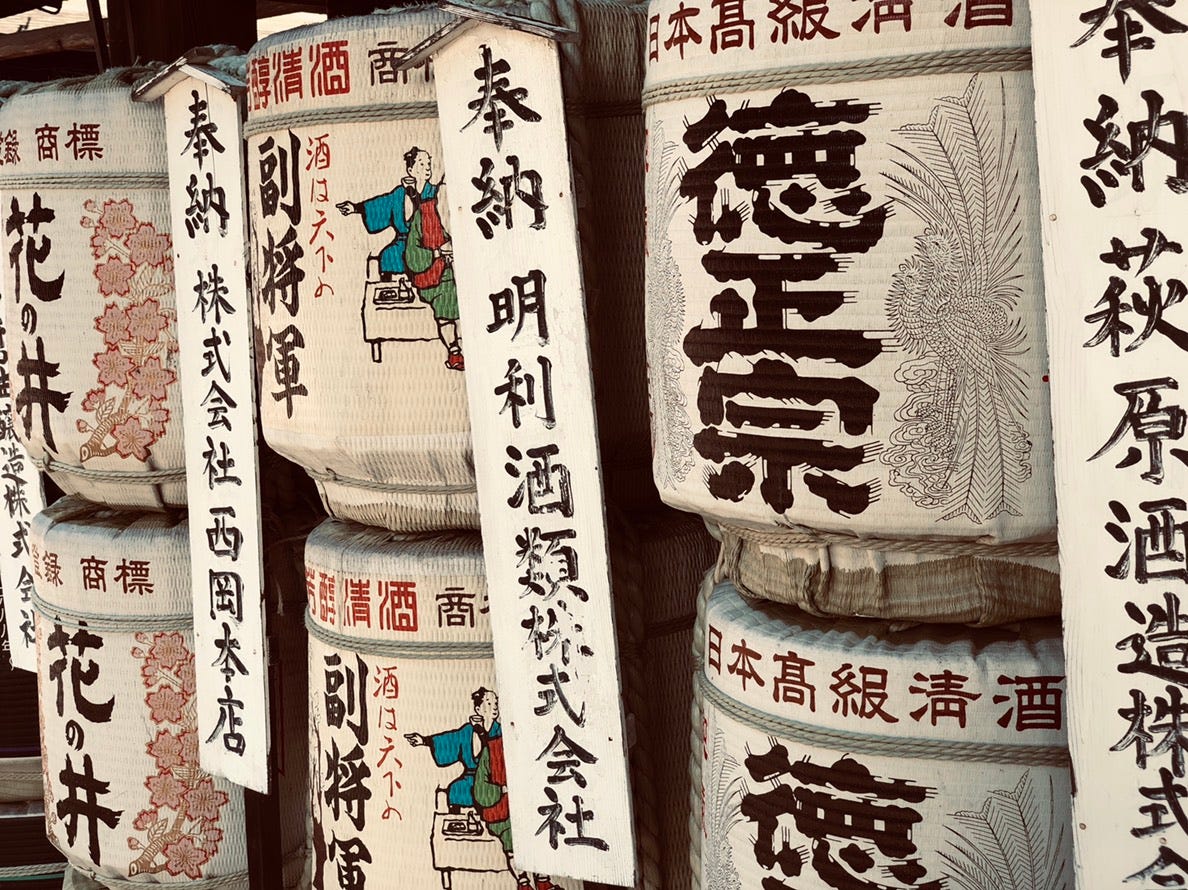 商標
花の井
奉納 株式会社 西岡本店
醸造株式会社
清酒 商
酒は天下の
副将軍
奉納 明利酒類株式会社
日本高級清酒
德正宗
奉納 萩原酒造株式会
登録 商標
花の井
芳醇清酒 商
酒は天下の
副将軍
日本高級清酒
德